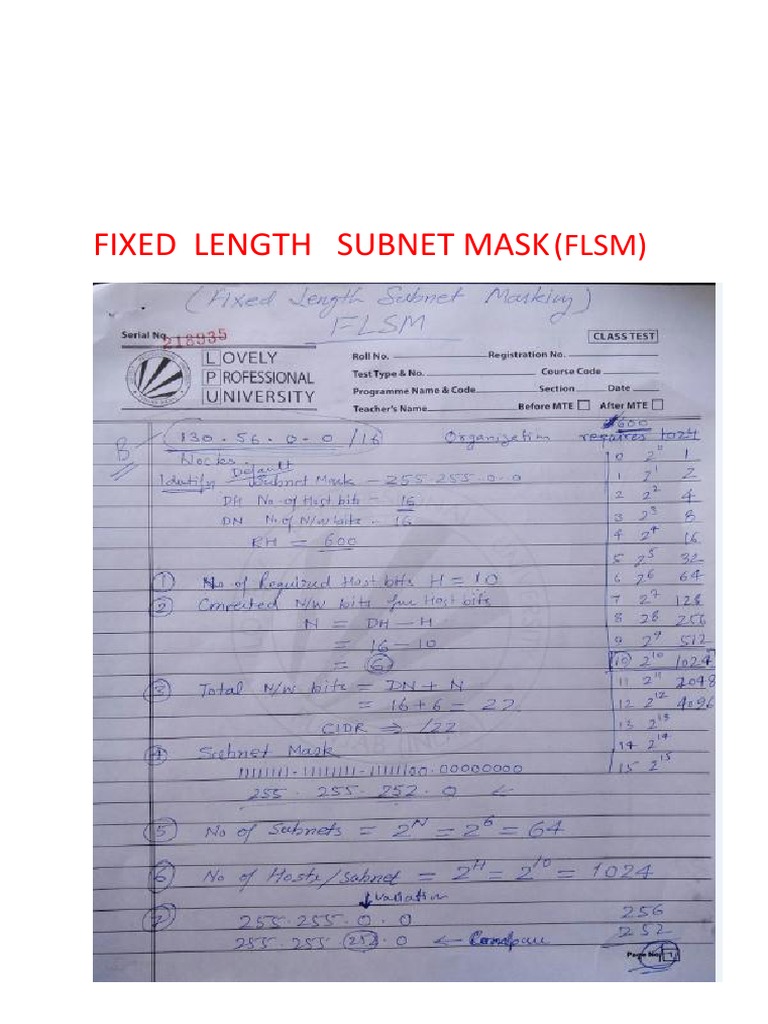 FIXED LENGTH SUBNET MASK (FLSM)
(Fixed Length Subnet Masking)
FLSM
Serial No. 218935
CLASS TEST
LOVELY
PROFESSIONAL
UNIVERSITY
Roll No. Registration No.
Test Type & No. Course Code
Programme Name & Code Section Date
Teacher's Name Before MTE After MTE
600
B 130.56.0.0/16 Organization requires
Default
Identify Subnet Mask - 255 255.0.0
DH No-of Host bits - 16
DN No of N/w bits - 16
RH = 600
0 2^0 1
1 2^1 2
2 2^2 4
3 2^3 8
4 2^4 16
5 2^5 32
6 2^6 64
7 2^7 128
8 2^8 256
9 2^9 512
10 2^10 1024
11 2^11 2048
12 2^12 4096
13 2^13
14 2^14
15 2^15
① No of Required Host bits H = 10
② N/w bits for Host bits
N = DH - H
= 16 - 10
= 6
③ Total N/w bits = DN + N
= 16+6 = 22
CIDR ⇒ /22
④ Subnet Mask
11111111.11111111.11111100.00000000
255 . 255. 252 . 0 ←
⑤ No of Subnets = 2^N = 2^6 = 64
⑥ No of Hosts/subnet = 2^H = 2^10 = 1024
↓ variation
⑦ 255.255.0.0 256
255.255 252.0 ← 252
4
Page No. 1